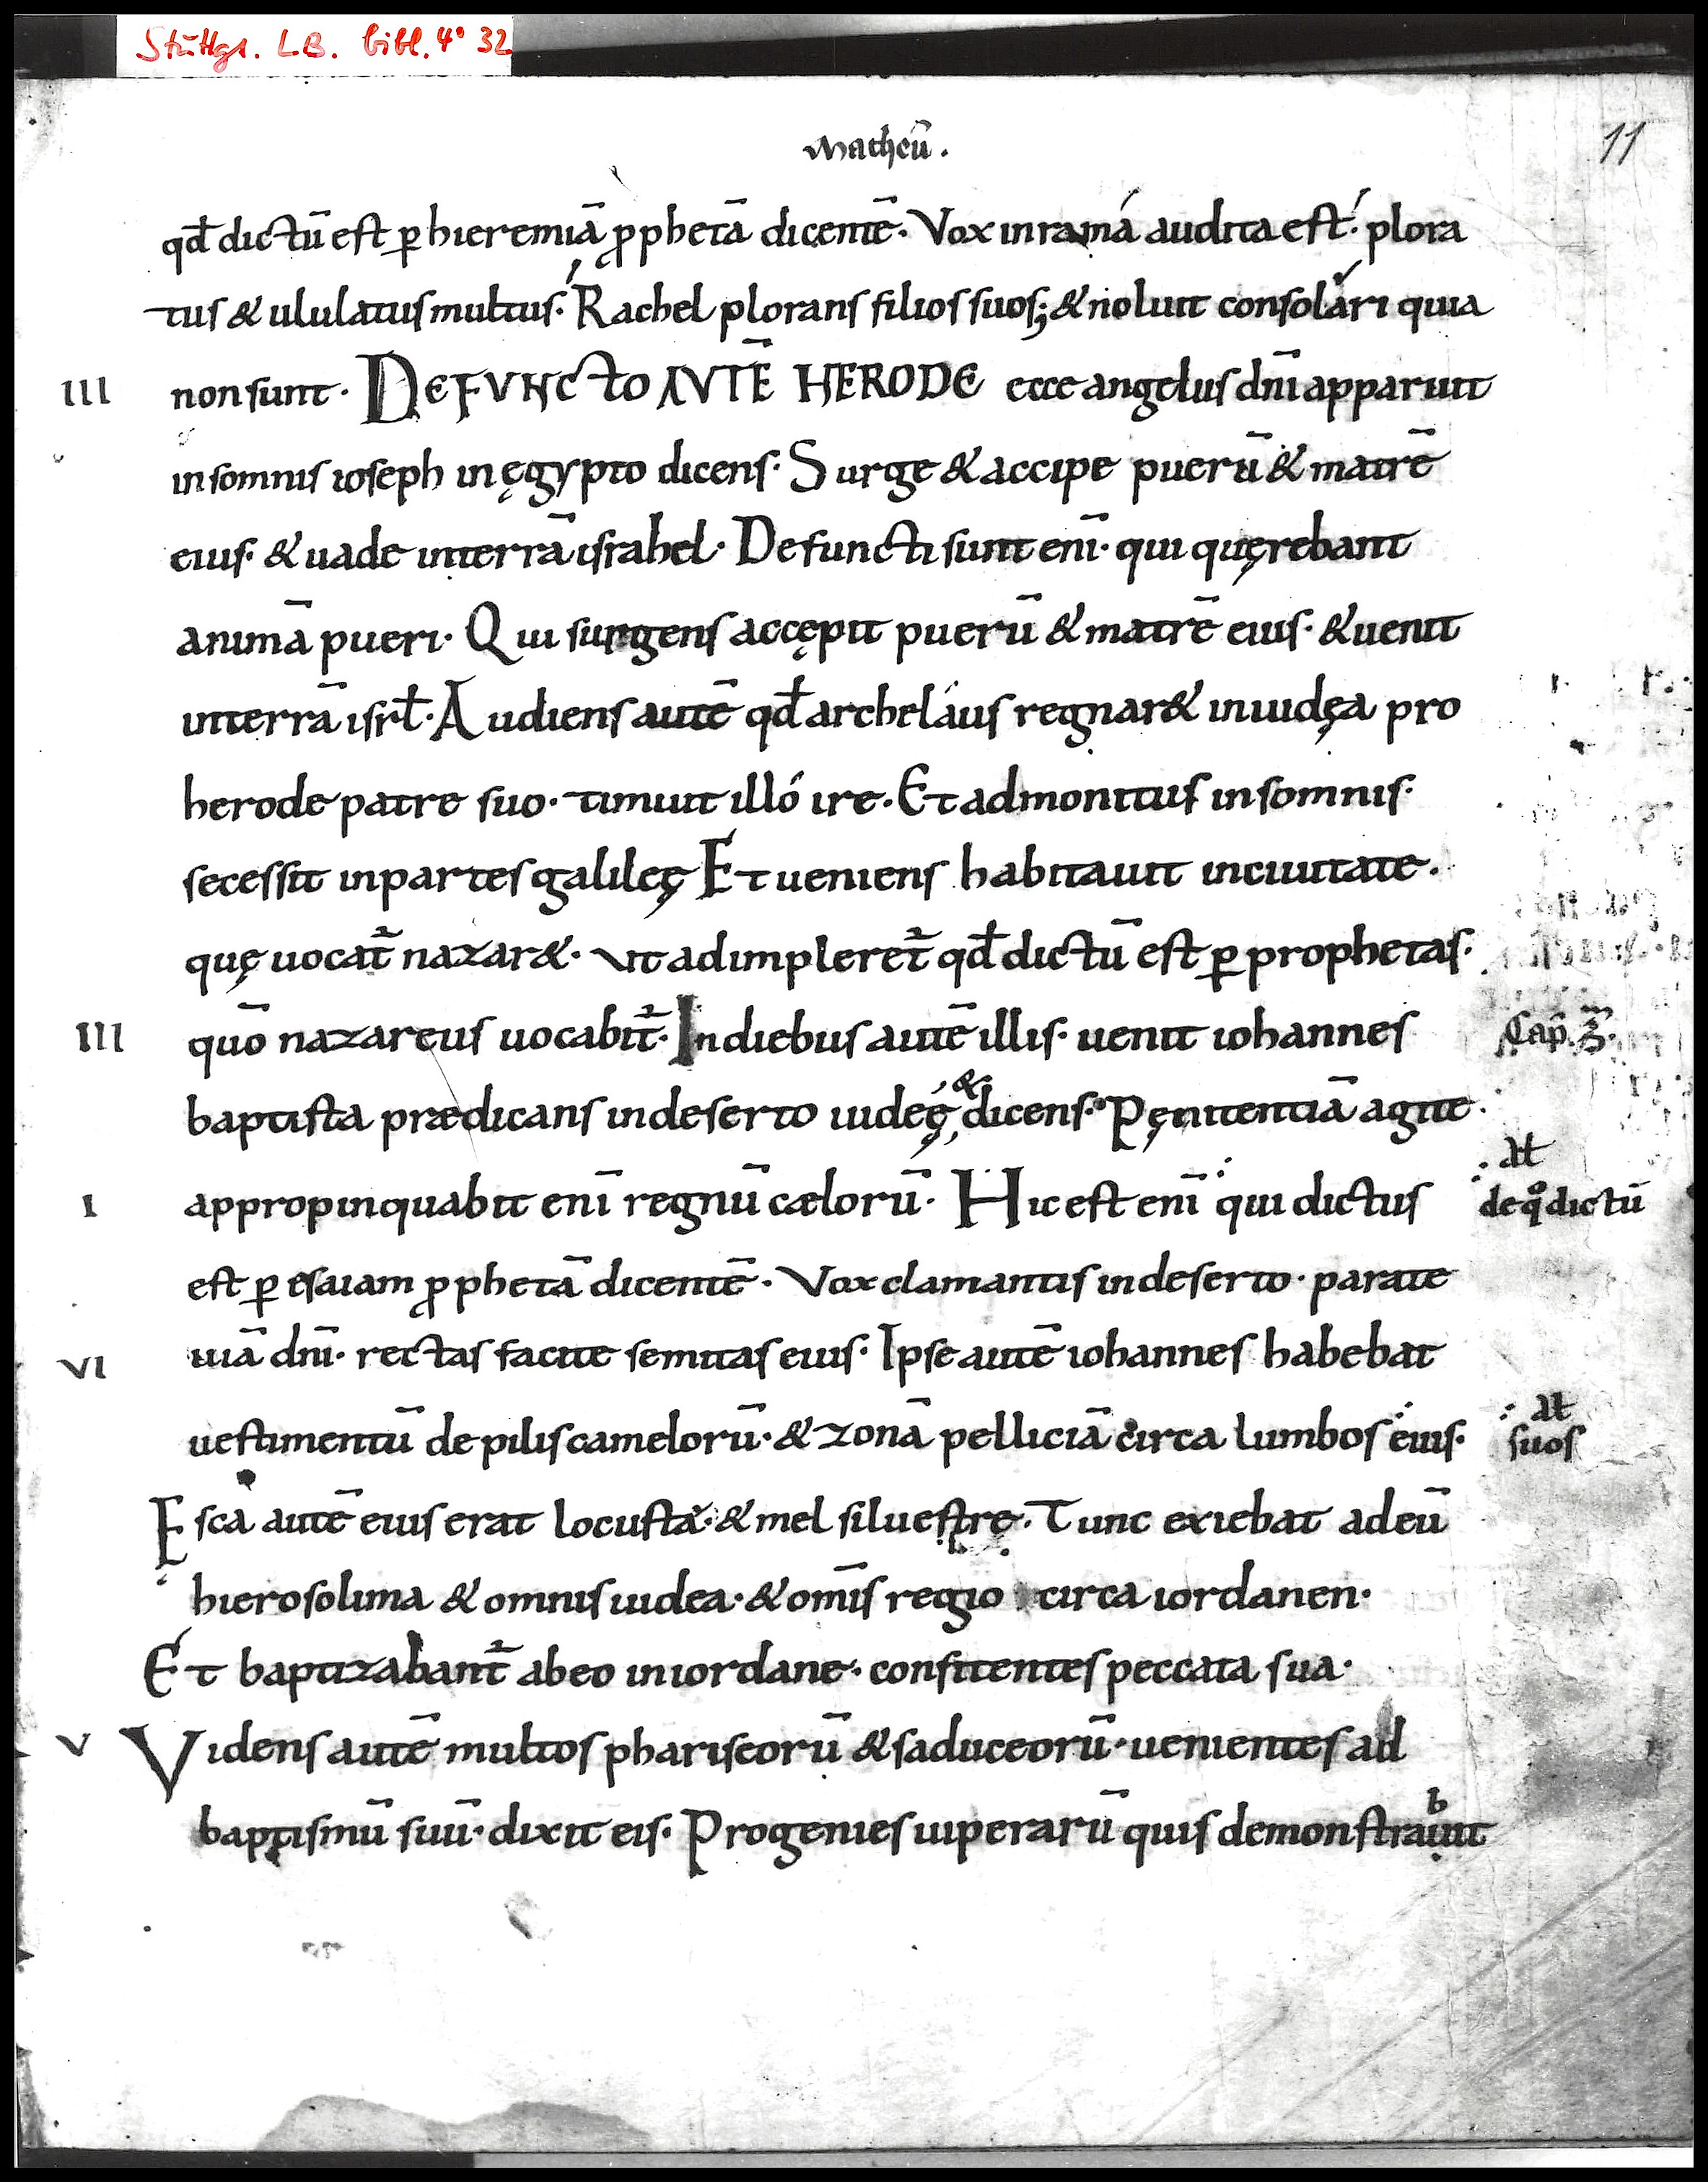 Stuttgt. LB. bibl. 4° 32
Matheū.
11
qđ dictū est ꝑ hieremiā ꝓphetā dicentē. Vox in ramá audita est. plora
tus & ululatus multus. Rachel plorans filios suos; & noluit consolári quia
III
non sunt. DEFUNCTO AUTĒ HERODE ecce angelus dnī apparuit
in somnis ioseph in ęgypto dicens. Surge & accipe puerū & matrē
eius. & uade in terrā israhel. Defuncti sunt enī. qui quęrebant
animā pueri. Qui surgens accępit puerū & matrē eius. & uenit
in terrā isrł. Audiens autē qđ archeláus regnar& in iudęa pro
herode patre suo. timuit illó ire. Et admonitus in somnis.
secessit in partes galileę Et ueniens habitauit in ciuitate.
quę uocat᷑ nazar&. ut adimpleret᷑ qđ dictū est ꝑ prophetas.
III
quō nazareus uocabit᷑. In diebus autē illis. uenit iohannes
Cap̄. 3.
baptista prædicans in deserto iudeę & dicens. Pęnitentiā agite.
I
appropinquabit enī regnū cælorū. Hic est enī qui dictus
.at
de qͦ dictū
est ꝑ esaiam ꝓphetā dicentē. Vox clamantis in deserto. parate
VI
uiā dnī. rectas facite semitas eius. Ipse autē iohannes habebat
uestimentū de pilis camelorū. & zonā pelliciā circa lumbos eius.
at
suos
Esca autē eius erat locusta. & mel siluestrę. Tunc exiebat ad eū
hierosolima & omnis iudea. & om̄is regio circa iordanen.
Et baptizabant᷑ ab eo in iordane. confitentes peccata sua.
V
Videns autē multos phariseorū & saduceorū. uenientes ad
baptismū suū. dixit eis. Progenies uiperarū quis demonstrauᵇit